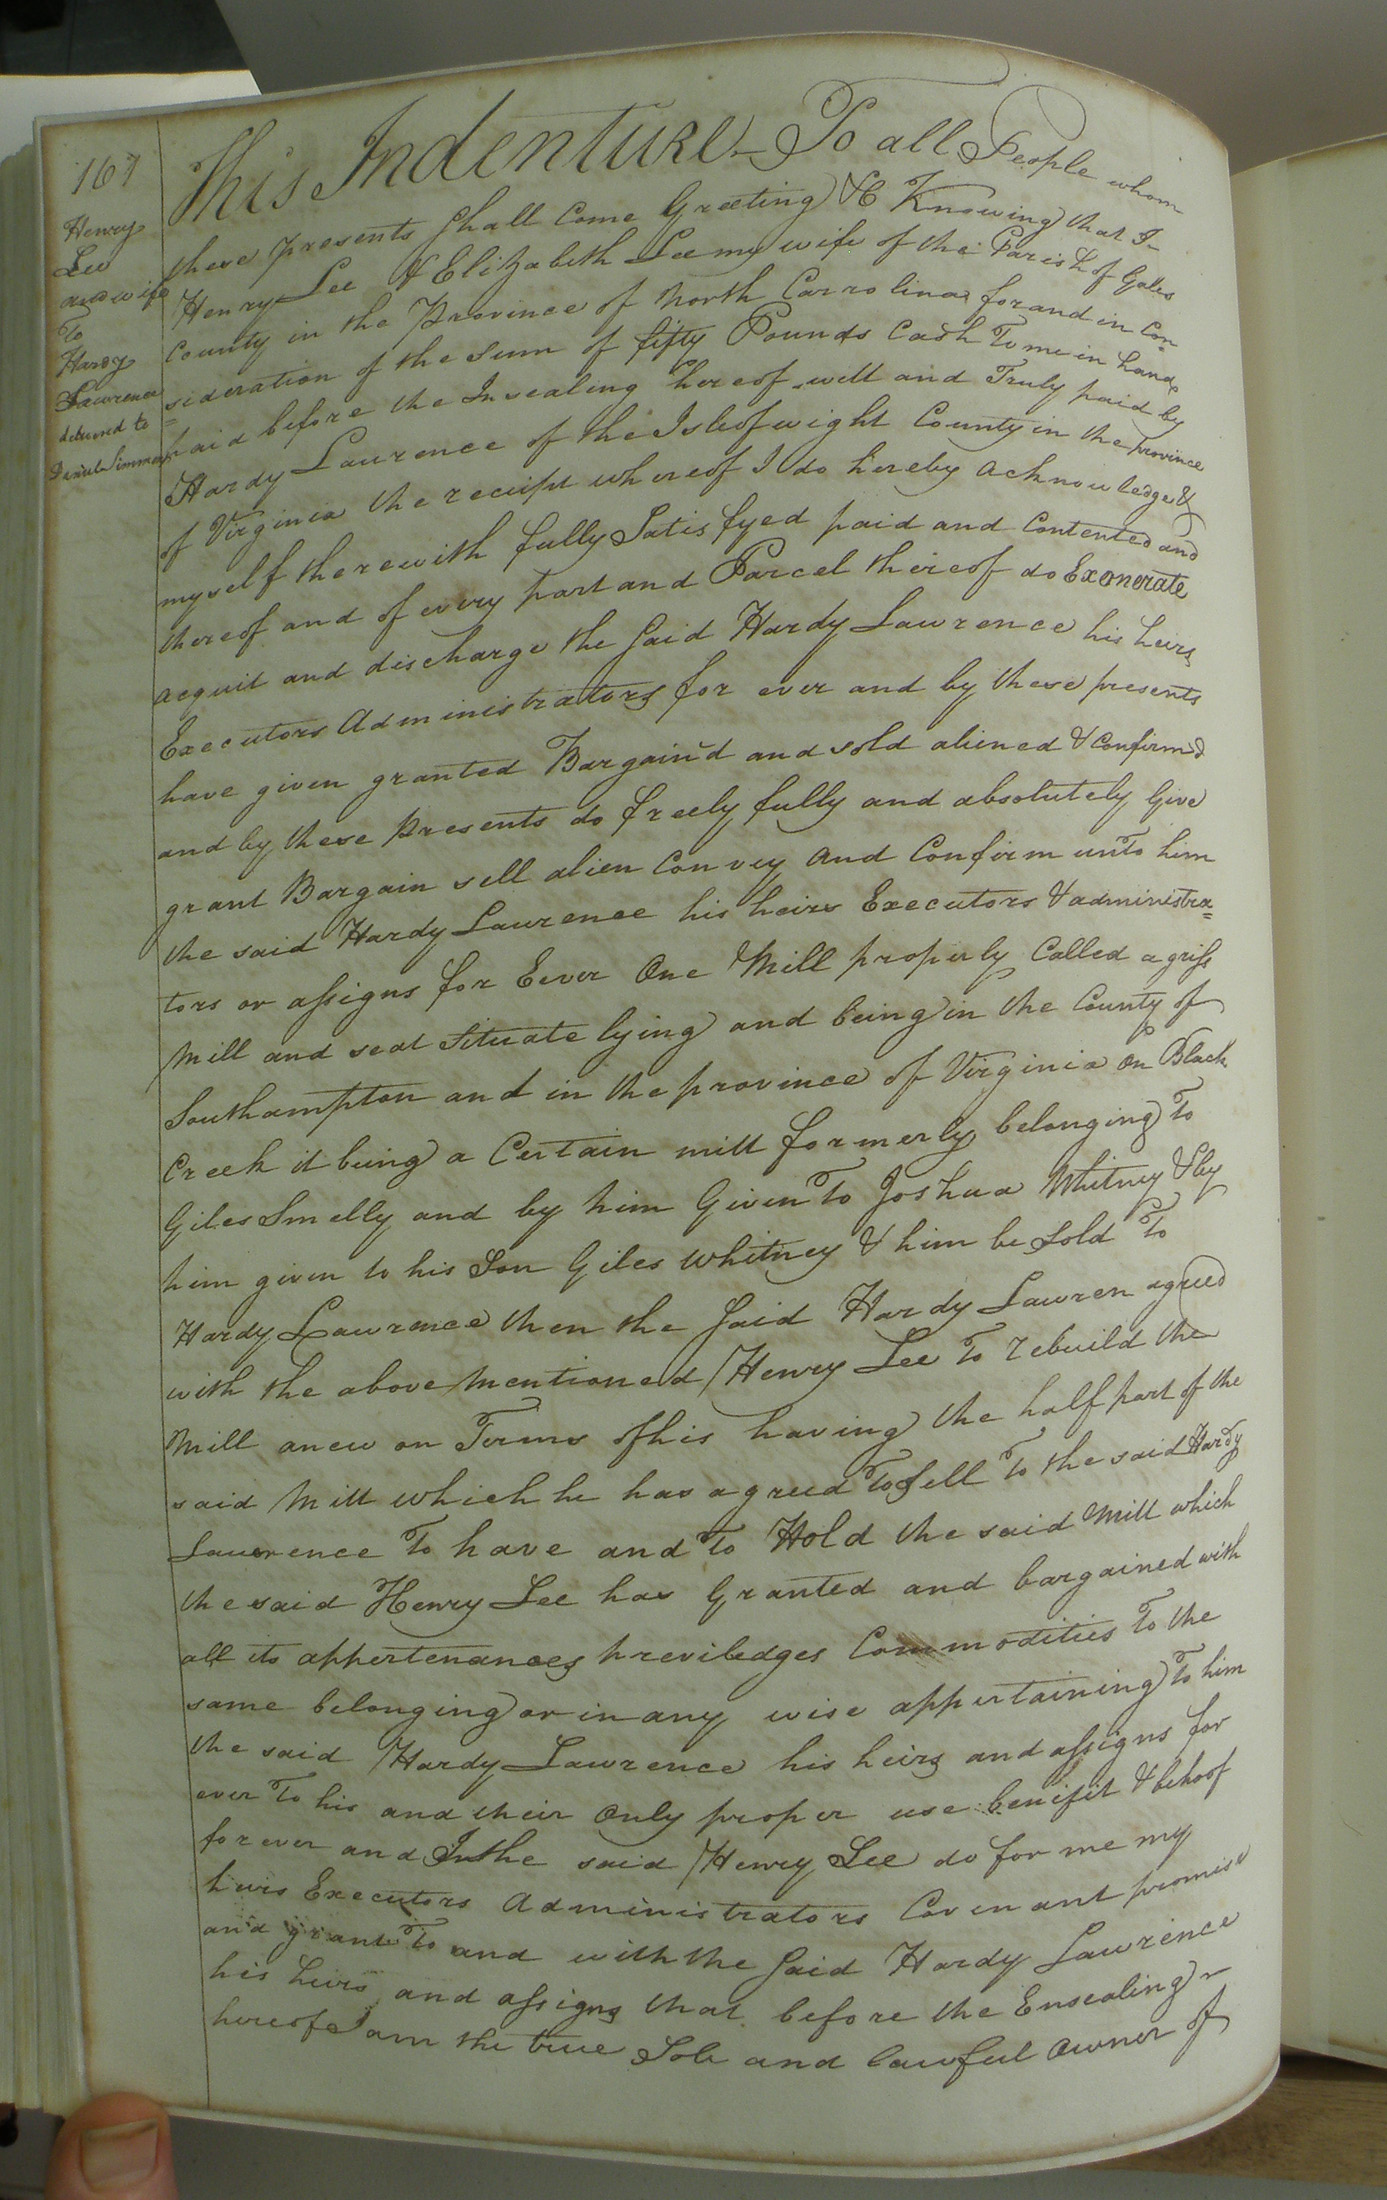 167
Henry
Lee
and wife
To
Hardy
Lawrence
delivered to
Daniel Simmons
This Indenture To all People whom
these presents shall Come Greeting &C Knowing that I
Henry Lee & Elizabeth Lee my wife of the Parish of Gates
County in the Province of North Carrolina for and in Con-
sideration of the Sum of fifty Pounds Cash To me in hand
paid before the Insealing hereof well and Truly paid by
Hardy Lawrence of the Isle of wight County in the province
of Virginia the receipt whereof I do hereby acknowledge &
myself therewith fully Satisfyed paid and Contented and
thereof and of every part and Parcel thereof do Exonerate
acquit and discharge the said Hardy Lawrence his heirs
Executors Administrators for ever and by these presents
have given granted Bargain'd and sold aliened & Confirmd
and by these presents do freely fully and absolutely Give
grant Bargain sell alien Convey and Confirm unto him
the said Hardy Lawrence his heirs Executors & administra=
tors or assigns for Eever One Mill properly Called a griss
Mill and seat Situate lying and being in the County of
Southampton and in the province of Virginia on Black
Creek it being a Certain mill formerly belonging To
Giles Smelly and by him Given To Joshua Whitney & by
him given to his Son Giles Whitney & him be Sold To
Hardy Lawrence then the said Hardy Lawren agreed
with the above Mentioned Henry Lee To rebuild the
Mill anew on Terms of his having the half part of the
said Mill which he has agreed To Sell To the said Hardy
Lawrence To have and To Hold the said Mill which
the said Henry Lee has Granted and bargained with
all its appertenances previledges Commodities To the
same belonging or in any wise appertaining To him
the said Hardy Lawrence his heirs and assigns for
ever To his and their Only proper use benifit & behoof
forever and I the said Henry Lee do for me my
heirs Executors Administrators Covenant promise
and grant To and with the said Hardy Lawrence
his heirs and assigns that before the Ensealing
hereof I am the true Sole and lawful Owner of